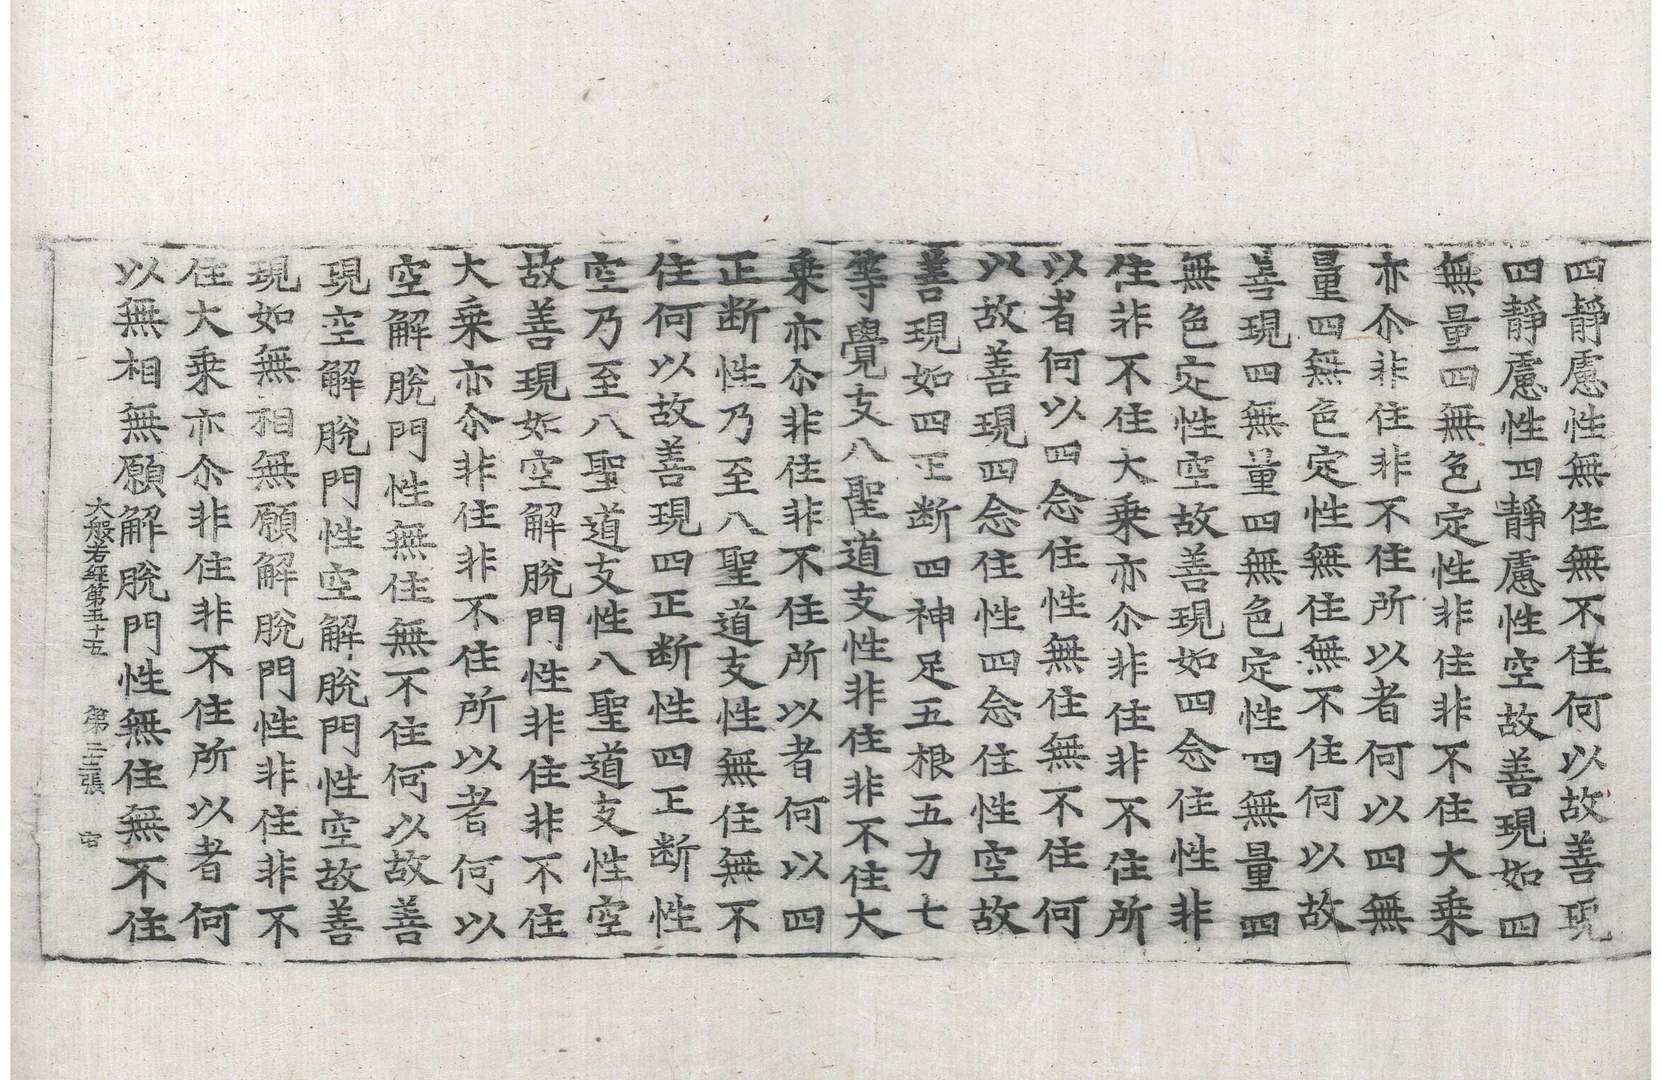 四靜慮性無住無不住何以故善現
四靜慮性四靜慮性空故善現如四
無量四無色定性非住非不住大乗
亦尒非住非不住所以者何以四無
量四無色定性無住無不住何以故
善現四無量四無色定性四無量四
無色定性空故善現如四念住性非
住非不住大乗亦尒非住非不住所
以者何以四念住性無住無不住何
以故善現四念住性四念住性空故
善現如四正断四神足五根五力七
等覺支八聖道支性非住非不住大
乗亦尒非住非不住所以者何以四
正断性乃至八聖道支性無住無不
住何以故善現四正断性四正断性
空乃至八聖道支性八聖道支性空
故善現如空解脫門性非住非不住
大乗亦尒非住非不住所以者何以
空解脫門性無住無不住何以故善
現空解脫門性空解脫門性空故善
現如無相無願解脫門性非住非不
住大乗亦尒非住非不住所以者何
以無相無願解脫門性無住無不住
大般若經第五十五 第三張 宙